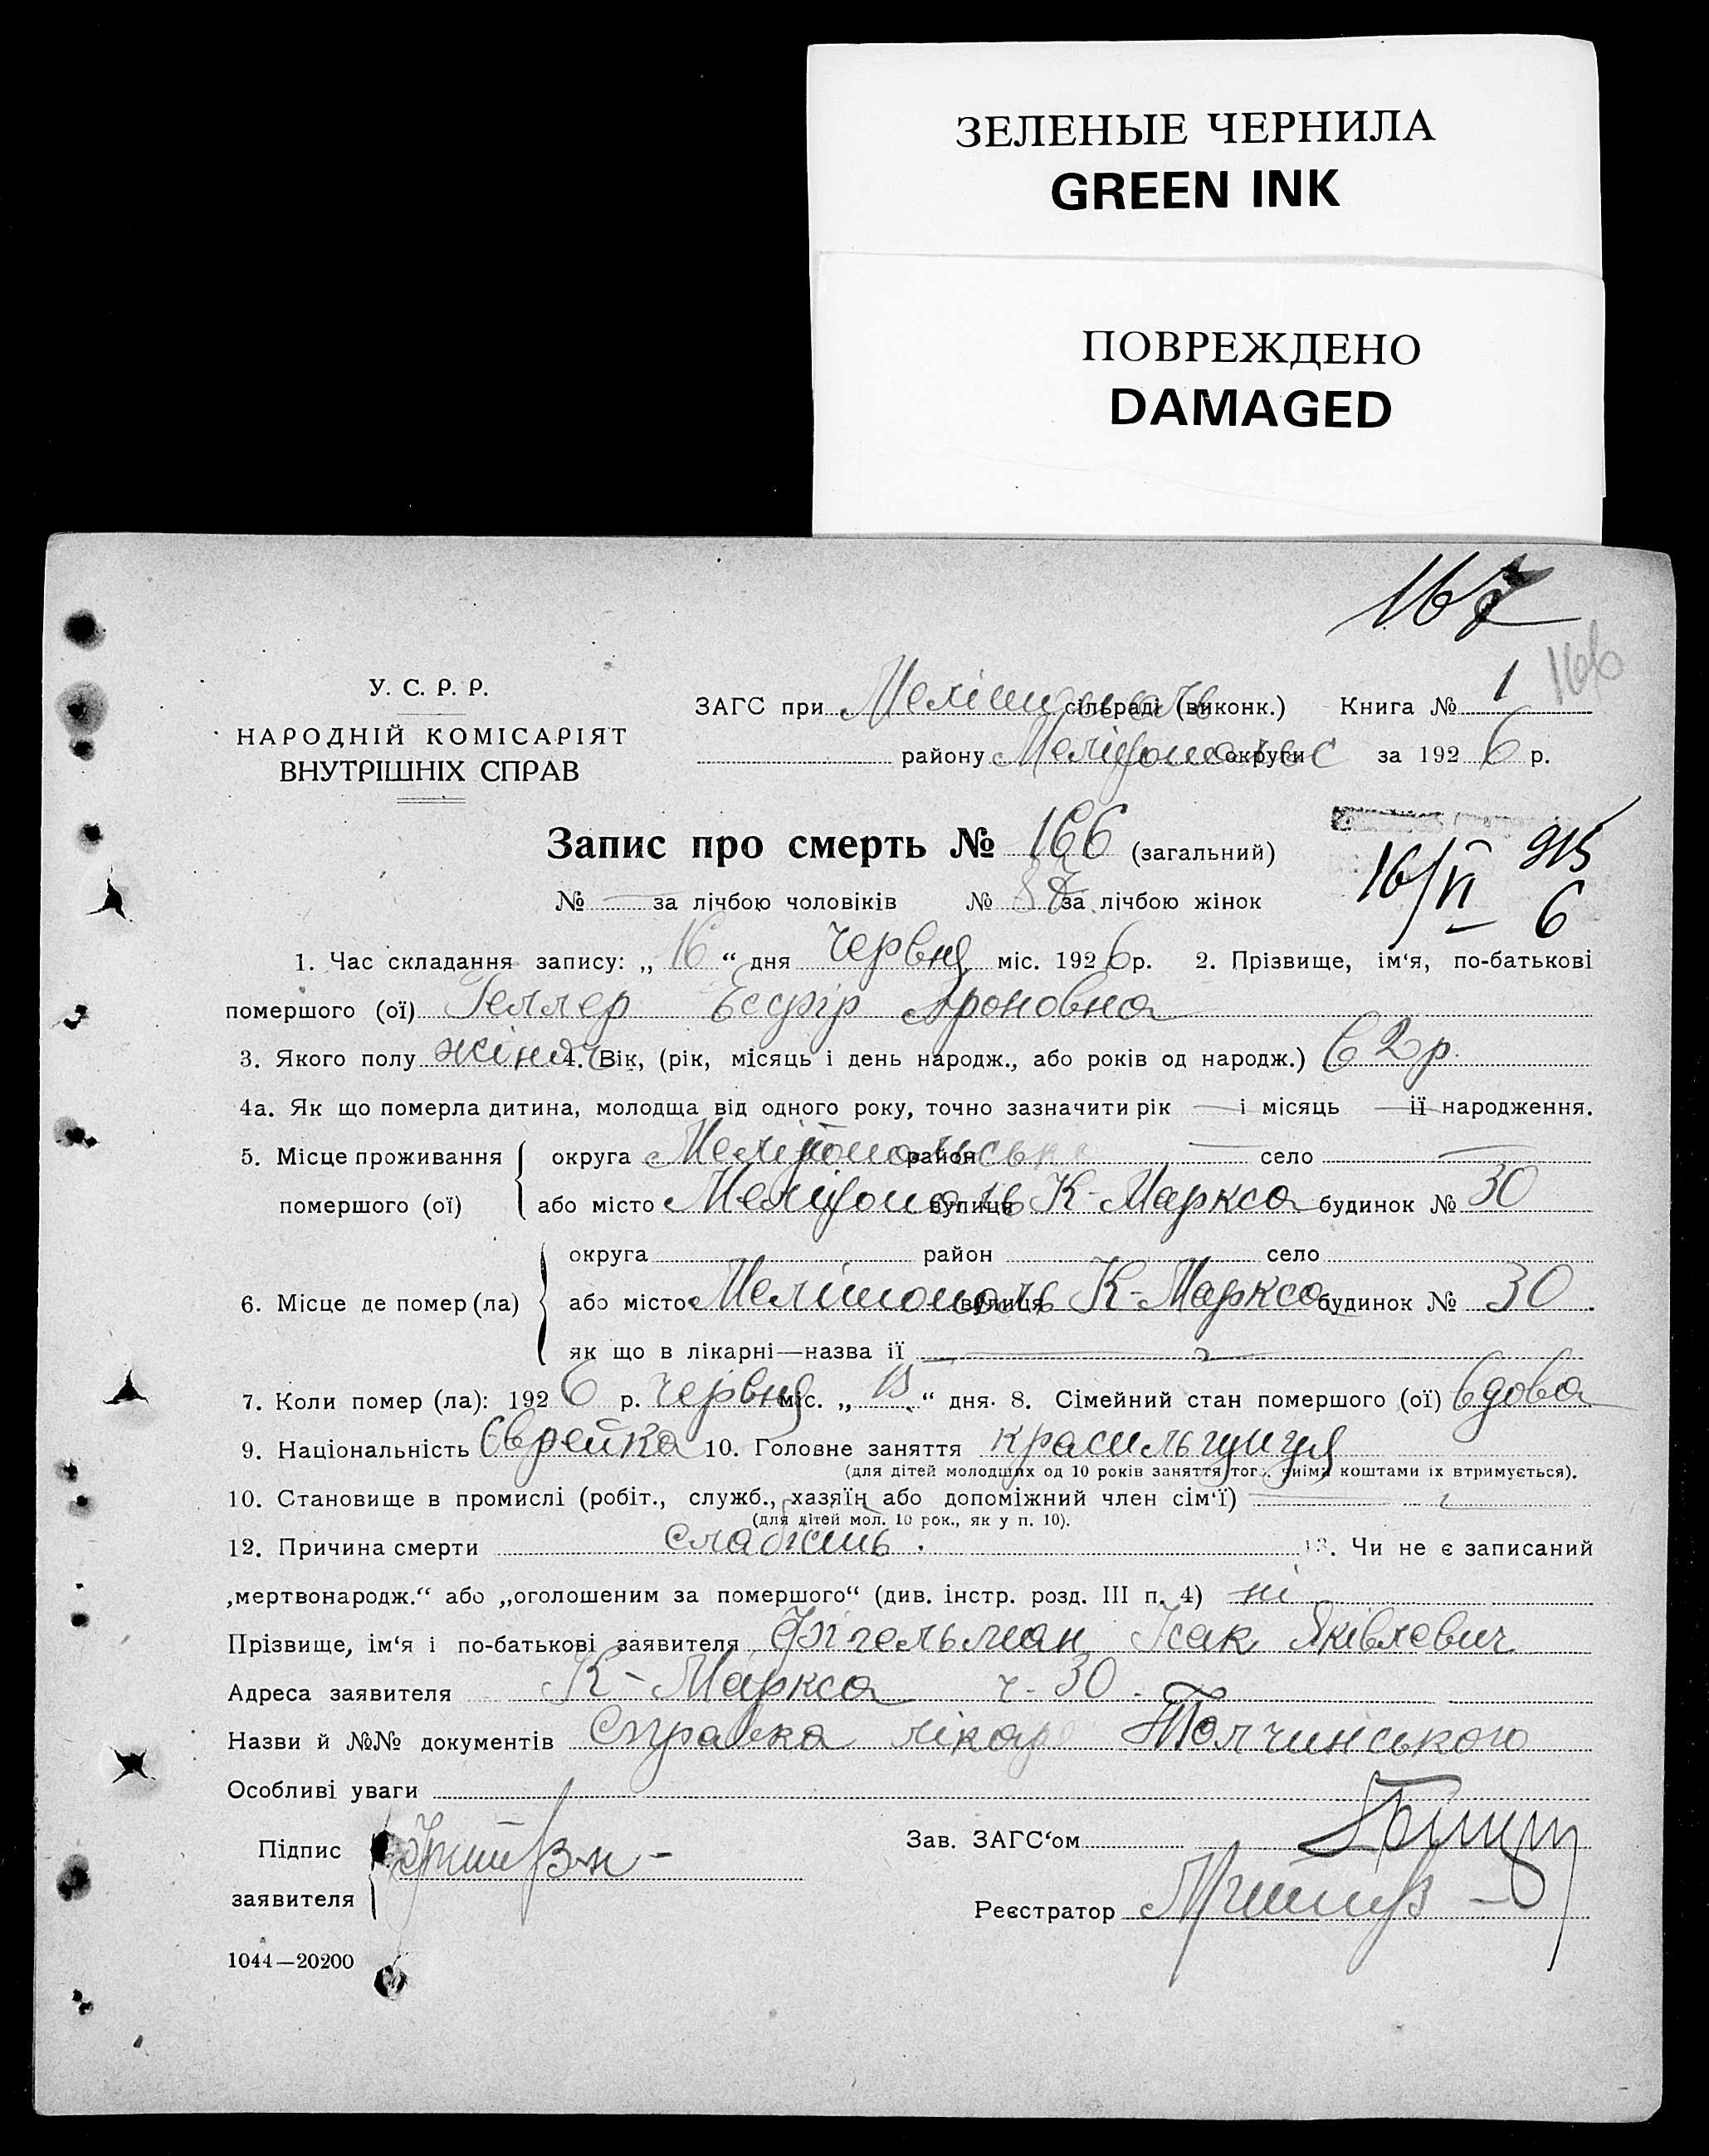 ЗЕЛЕНЫЕ ЧЕРНИЛА
GREEN INK
ПОВРЕЖДЕНО
DAMAGED
167
166
У. С. Р. Р.
НАРОДНІЙ КОМІСАРІЯТ
ВНУТРІШНІХ СПРАВ
ЗАГС при Мелітополь сільраді (виконк.) Книга № 1
району Мелітопольс округи за 1926 р.
Запис про смерть № 166 (загальний)
16/VI 6
№ — за лічбою чоловіків № 87 за лічбою жінок
1. Час складання запису: „16“ дня червня міс. 1926 р. 2. Прізвище, ім‘я, по-батькові
помершого (ої) Геллер Есфір Ароновна
3. Якого полу жіноч 4. Вік, (рік, місяць і день народж., або років од народж.) 62 р.
4а. Як що померла дитина, молодша від одного року, точно зазначити рік — і місяць — її народження.
5. Місце проживання округа Мелітопольська район — село —
помершого (ої) або місто Мелітополь вулиця К-Маркса будинок № 30
округа район село
6. Місце де помер (ла) або місто Мелітополь вулиця К-Маркса будинок № 30.
як що в лікарні—назва її —
7. Коли помер (ла): 1926 р. червня міс. „15“ дня. 8. Сімейний стан помершого (ої) вдова
9. Національність Єврейка 10. Головне заняття красильщиця
(для дітей молодших од 10 років заняття тог., чиїми коштами їх втримується).
10. Становище в промислі (робіт., служб., хазяїн або допоміжний член сім‘ї) —
(для дітей мол. 10 рок., як у п. 10).
12. Причина смерти слабість. 13. Чи не є записаний
„мертвонародж.“ або „оголошеним за помершого“ (див. інстр. розд. III п. 4) ні
Прізвище, ім‘я і по-батькові заявителя Фігельман Ісак Яківлевич
Адреса заявителя К-Маркса ч. 30.
Назви й №№ документів Справка лікаря Толчинського
Особливі уваги
Підпис
заявителя
Зав. ЗАГС‘ом
Реєстратор
1044—20200